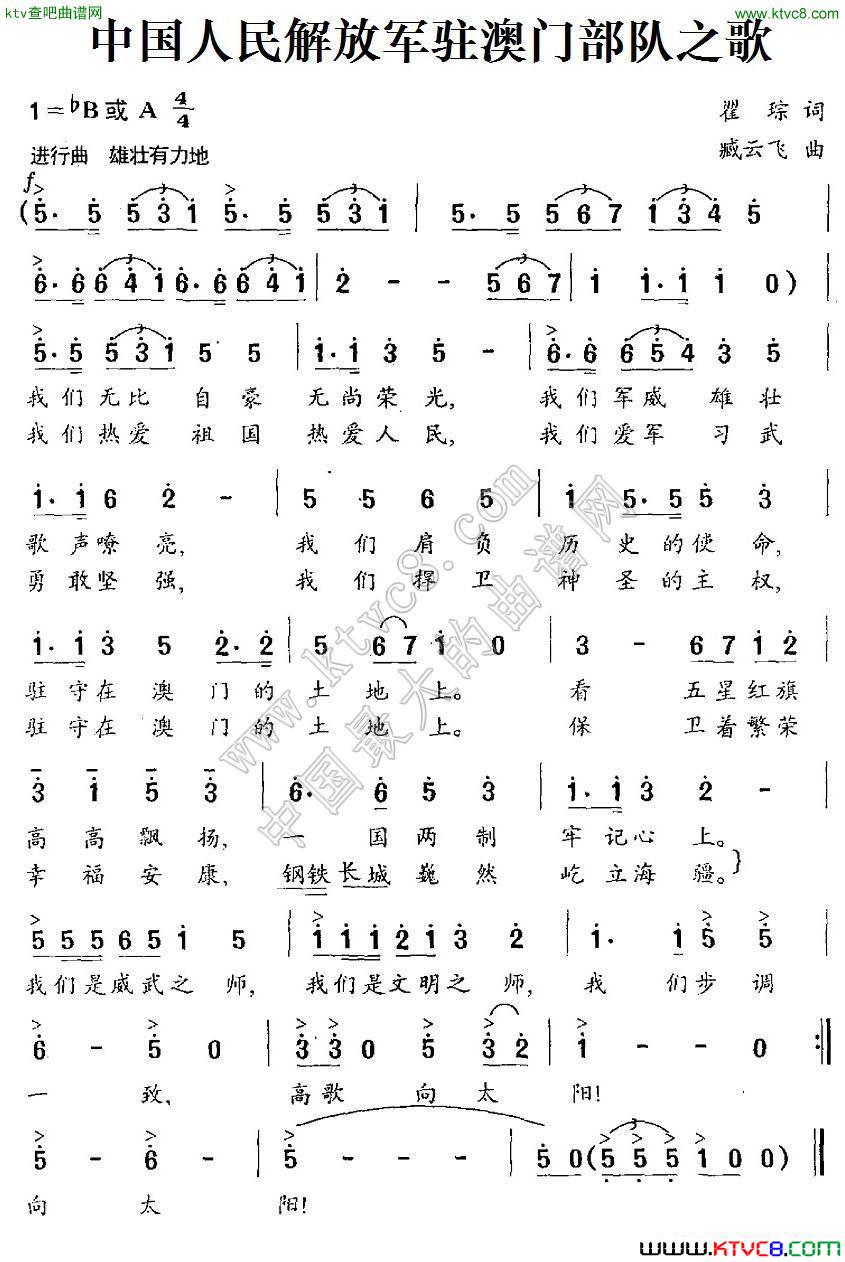 ktv查吧曲谱网
www.ktvc8.com
中国人民解放军驻澳门部队之歌
1=♭B或 A 4/4
瞿 琮 词
进行曲 雄壮有力地
臧云飞 曲
f
(5· 5 5 3 1 5· 5 5 3 1 | 5· 5 5 5 6 7 1 3 4 5 |
6·6 6 4 1 6·6 6 4 1 | 2 - - 5 6 7 | 1 1·1 1 0) |
5·5 5 3 1 5 5 | 1·1 3 5 - | 6·6 6 5 4 3 5 |
我们无比 自豪 无尚荣光, 我们军威 雄壮
我们热爱 祖国 热爱人民, 我们爱军 习武
1·1 6 2 - | 5 5 6 5 | 1 5·5 5 3 |
歌声嘹亮, 我们肩负 历史的使命,
勇敢坚强, 我们捍卫 神圣的主权,
1·1 3 5 2·2 | 5 6 7 1 0 | 3 - 6 7 1 2 |
驻守在澳门的土地上。 看 五星红旗
驻守在澳门的土地上。 保 卫着繁荣
3 1 5 3 | 6· 6 5 3 | 1·1 3 2 - |
高高飘扬, 一国两制 牢记心上。
幸福安康, 钢铁长城巍然 屹立海疆。}
5 5 5 6 5 1 5 | 1 1 1 2 1 3 2 | 1· 1 5 5 |
我们是威武之师, 我们是文明之师, 我 们步调
6 - 5 0 | 3 3 0 5 3 2 | 1 - - 0 :|
一 致, 高歌 向太 阳!
5 - 6 - | 5 - - - | 5 0 (5 5 5 1 0 0) ‖
向 太 阳!
www.ktvc8.com
中国最大的曲谱网
WWW.KTVC8.COM